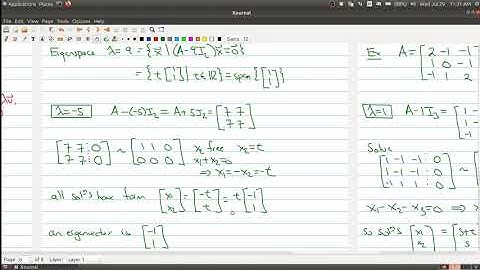 Applications Places
Wed Jul 29 11:31 AM
Xournal
File Edit View Journal Tools Options Help
Sans 12
Eigenspace λ=9 = {x⃗ | (A-9I₂)x⃗=0⃗}
= {t[1 1] | t∈ℝ} = span{[1 1]}
λ=-5 A-(-5)I₂ = A+5I₂ = [7 7
7 7]
[7 7 : 0 ~ [1 1 0 x₂ free x₂=t
7 7 : 0] 0 0 0] x₁+x₂=0
⇒ x₁=-x₂=-t
all solⁿs have form [x₁ x₂] = [-t t] = t[-1 1]
an eigenvector is [-1 1]
Ex A = [2 -1 -1
1 0 -1
-1 1 2
λ=1 A-1I₃ = [1
1 -
-1
Solve
[1 -1 -1 : 0
1 -1 -1 : 0
-1 1 1 : 0] ~
x₁-x₂-x₃=0 ⇒
so solⁿs [x₁ x₂ = [s+t s
Page of 8 Layer: Layer 1
Xournal